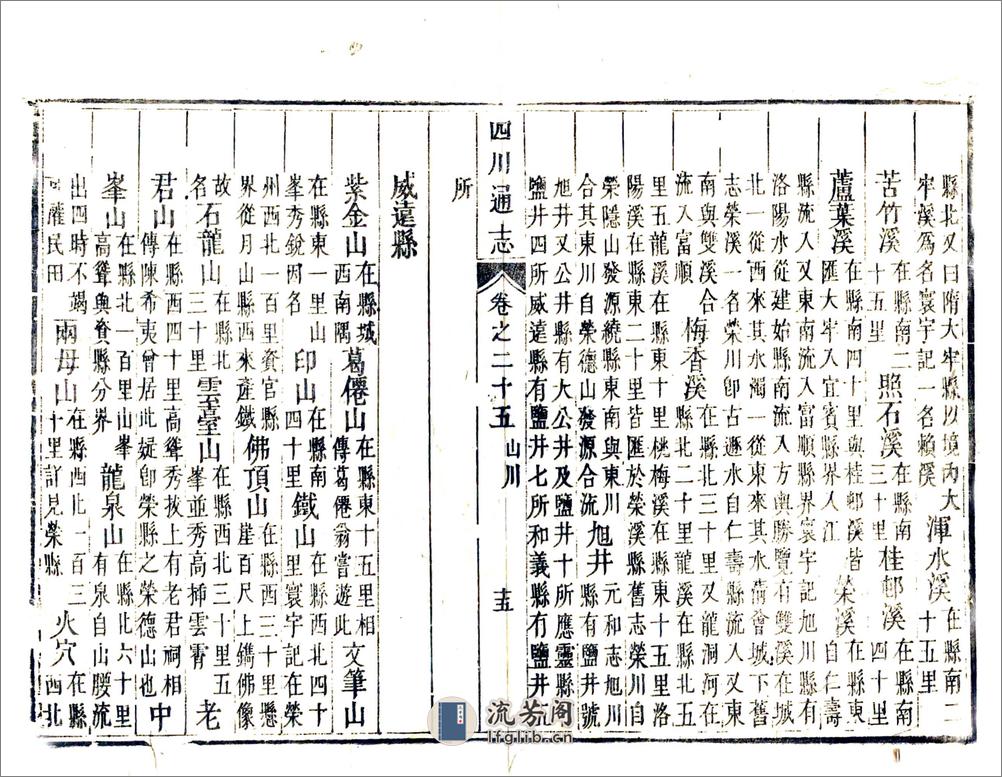 縣北又曰隋大牢縣以境內大
牢溪爲名寰宇記一名賴溪
渾水溪
在縣南二
十五里
苦竹溪
在縣南二
十五里
照石溪
在縣南
三十里
桂郫溪
在縣南
四十里
蘆葉溪
在縣南四十里與桂郫溪皆
匯大牢入宜賓縣界入江
榮溪
在縣東
自仁壽
縣流入又東南流入富順縣界寰宇記旭川縣有
洛陽水從建始縣南流入方輿勝覽有雙溪在城
北一從西來其水濁一從東來其水清會城下舊
志榮溪一名榮川卽古遯水自仁壽縣流入又東
南與雙溪合
流入富順
梅香溪
在縣北三十里又龍洞河在
縣北二十里龍溪在縣北五
里五龍溪在縣東十里桃梅溪在縣東十五里洛
陽溪在縣東二十里皆匯於榮溪縣舊志榮川自
榮隱山發源繞縣東南與東川
合其東川自榮德山發源合流
旭井
元和志旭川
縣有鹽井號
旭井又公井縣有大公井及鹽井十所應靈縣
鹽井四所威遠縣有鹽井七所和義縣有鹽井
所
四川通志
卷之二十五
山川
十五
威遠縣
紫金山
在縣城
西南隅
葛僊山
在縣東十五里相
傳葛僊翁嘗遊此
文筆山
在縣東一里山
峯秀銳因名
印山
在縣南
四十里
鐵山
在縣西北四十
里寰宇記在榮
州西北一百里資官縣
界從月山縣西來產鐵
佛頂山
在縣西三十里懸
崖百尺上鐫佛像
故
名
石龍山
在縣北
三十里
雲臺山
在縣西北三十五
峯並秀高揷雲霄
老
君山
在縣西四十里高聳秀拔上有老君祠相
傳陳希夷曾居此疑卽榮縣之榮德山也
中
峯山
在縣北一百里山峯
高聳與資縣分界
龍泉山
在縣北六十里
有泉自山腰流
出四時不竭
可漑民田
兩母山
在縣西北一百三
十里詳見榮縣
火穴
在縣
西北
流芳阁
lfglib.cn